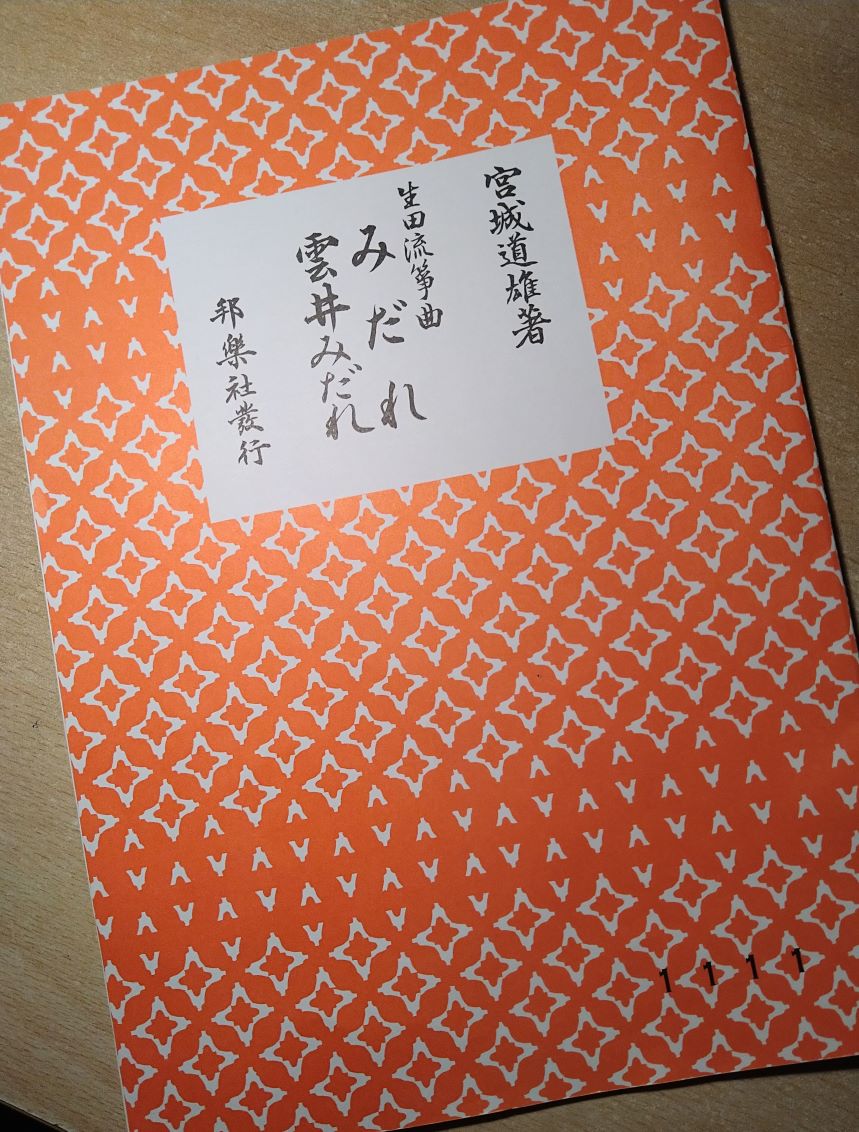 宮城道雄著
生田流箏曲
みだれ
雲井みだれ
邦樂社發行
1111